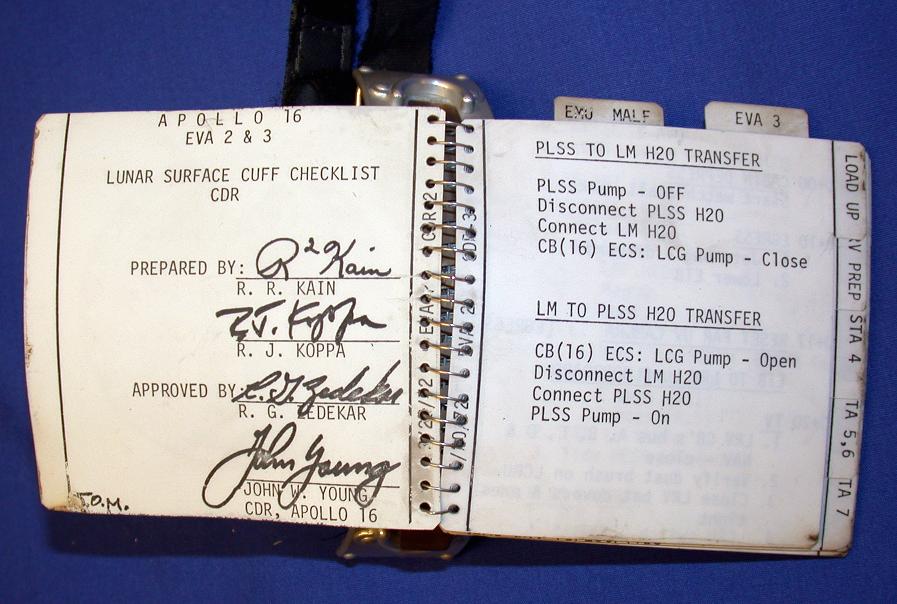 APOLLO 16
EVA 2 & 3
LUNAR SURFACE CUFF CHECKLIST
CDR
PREPARED BY: R²Kain
R. R. KAIN
R. J. KOPPA
APPROVED BY: R. G. Zedekar
R. G. ZEDEKAR
John Young
JOHN W. YOUNG
CDR, APOLLO 16
T.O.M.
EMU MALF
EVA 3
PLSS TO LM H2O TRANSFER
PLSS Pump - OFF
Disconnect PLSS H2O
Connect LM H2O
CB(16) ECS: LCG Pump - Close
LM TO PLSS H2O TRANSFER
CB(16) ECS: LCG Pump - Open
Disconnect LM H2O
Connect PLSS H2O
PLSS Pump - On
LOAD UP
PREP
STA 4
TA 5,6
TA 7